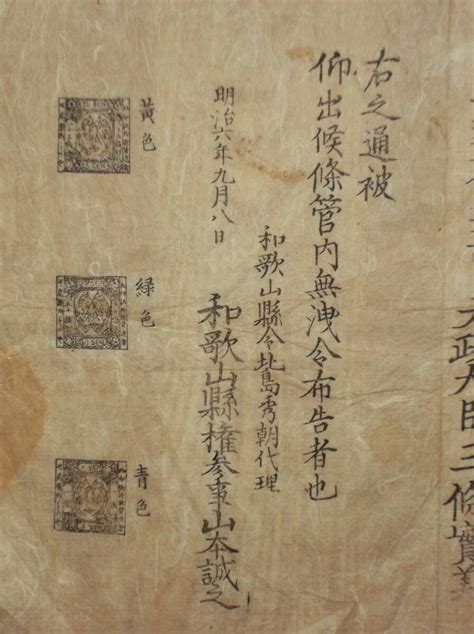 太政大臣三條實美
右之通被
仰出候條管内無洩令布告者也
和歌山縣令北島秀朝代理
和歌山縣權參事山本誠之
明治六年九月八日
黄色
緑色
青色